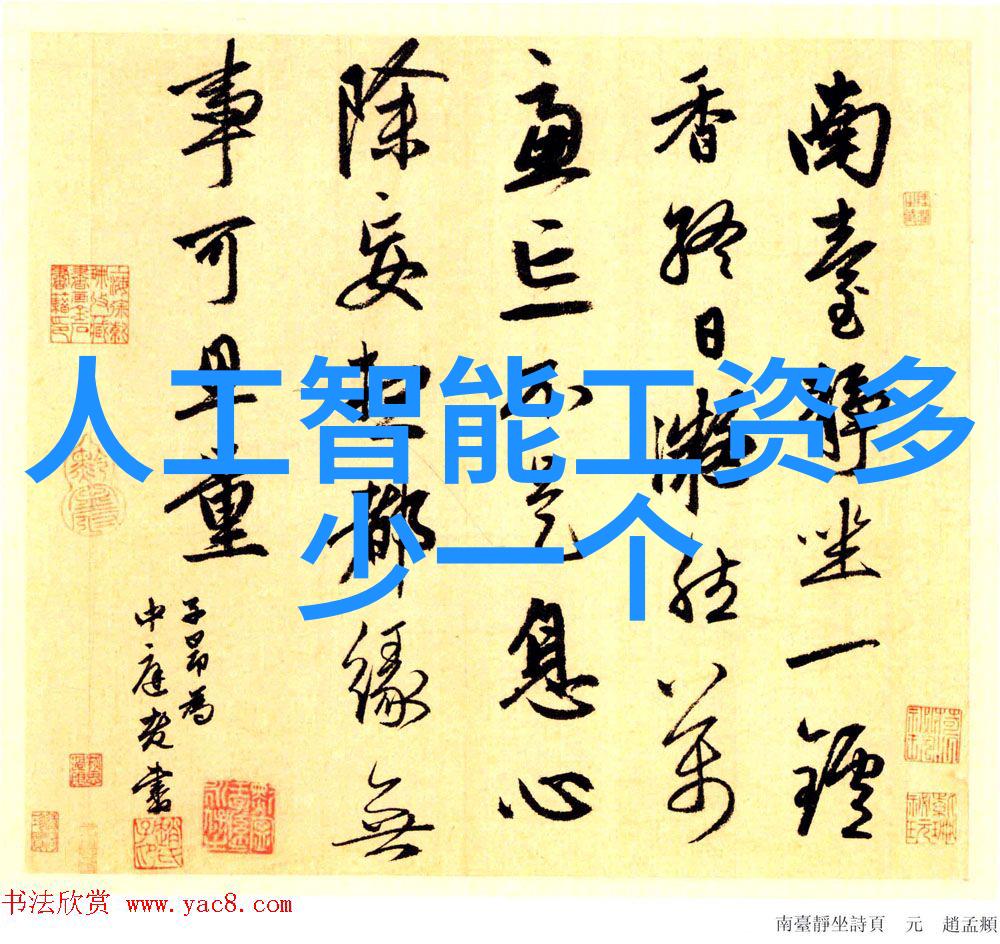 南臺靜坐一鑪
香終日凝然萬
慮亡不是息心
除妄想都緣無
事可思量
子昂為
中庭老書
人工智能工资多
少一个
书法欣赏 www.yac8.com
南臺靜坐詩頁 元 趙孟頫